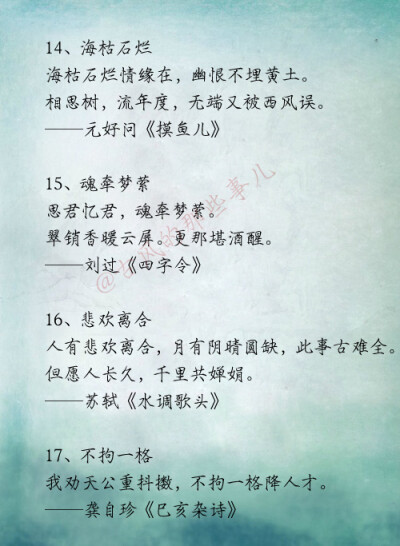 14、海枯石烂
海枯石烂情缘在，幽恨不埋黄土。
相思树，流年度，无端又被西风误。
——元好问《摸鱼儿》
15、魂牵梦萦
思君忆君，魂牵梦萦。
翠销香暖云屏。更那堪酒醒。
——刘过《四字令》
16、悲欢离合
人有悲欢离合，月有阴晴圆缺，此事古难全。
但愿人长久，千里共婵娟。
——苏轼《水调歌头》
17、不拘一格
我劝天公重抖擞，不拘一格降人才。
——龚自珍《己亥杂诗》
@古风的那些事儿